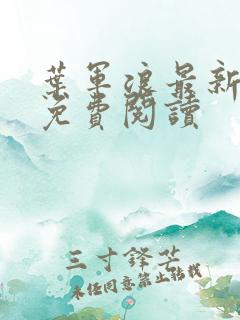 葉軍浪最新
免費閱讀
三寸鋒芒
未經同意禁止轉載